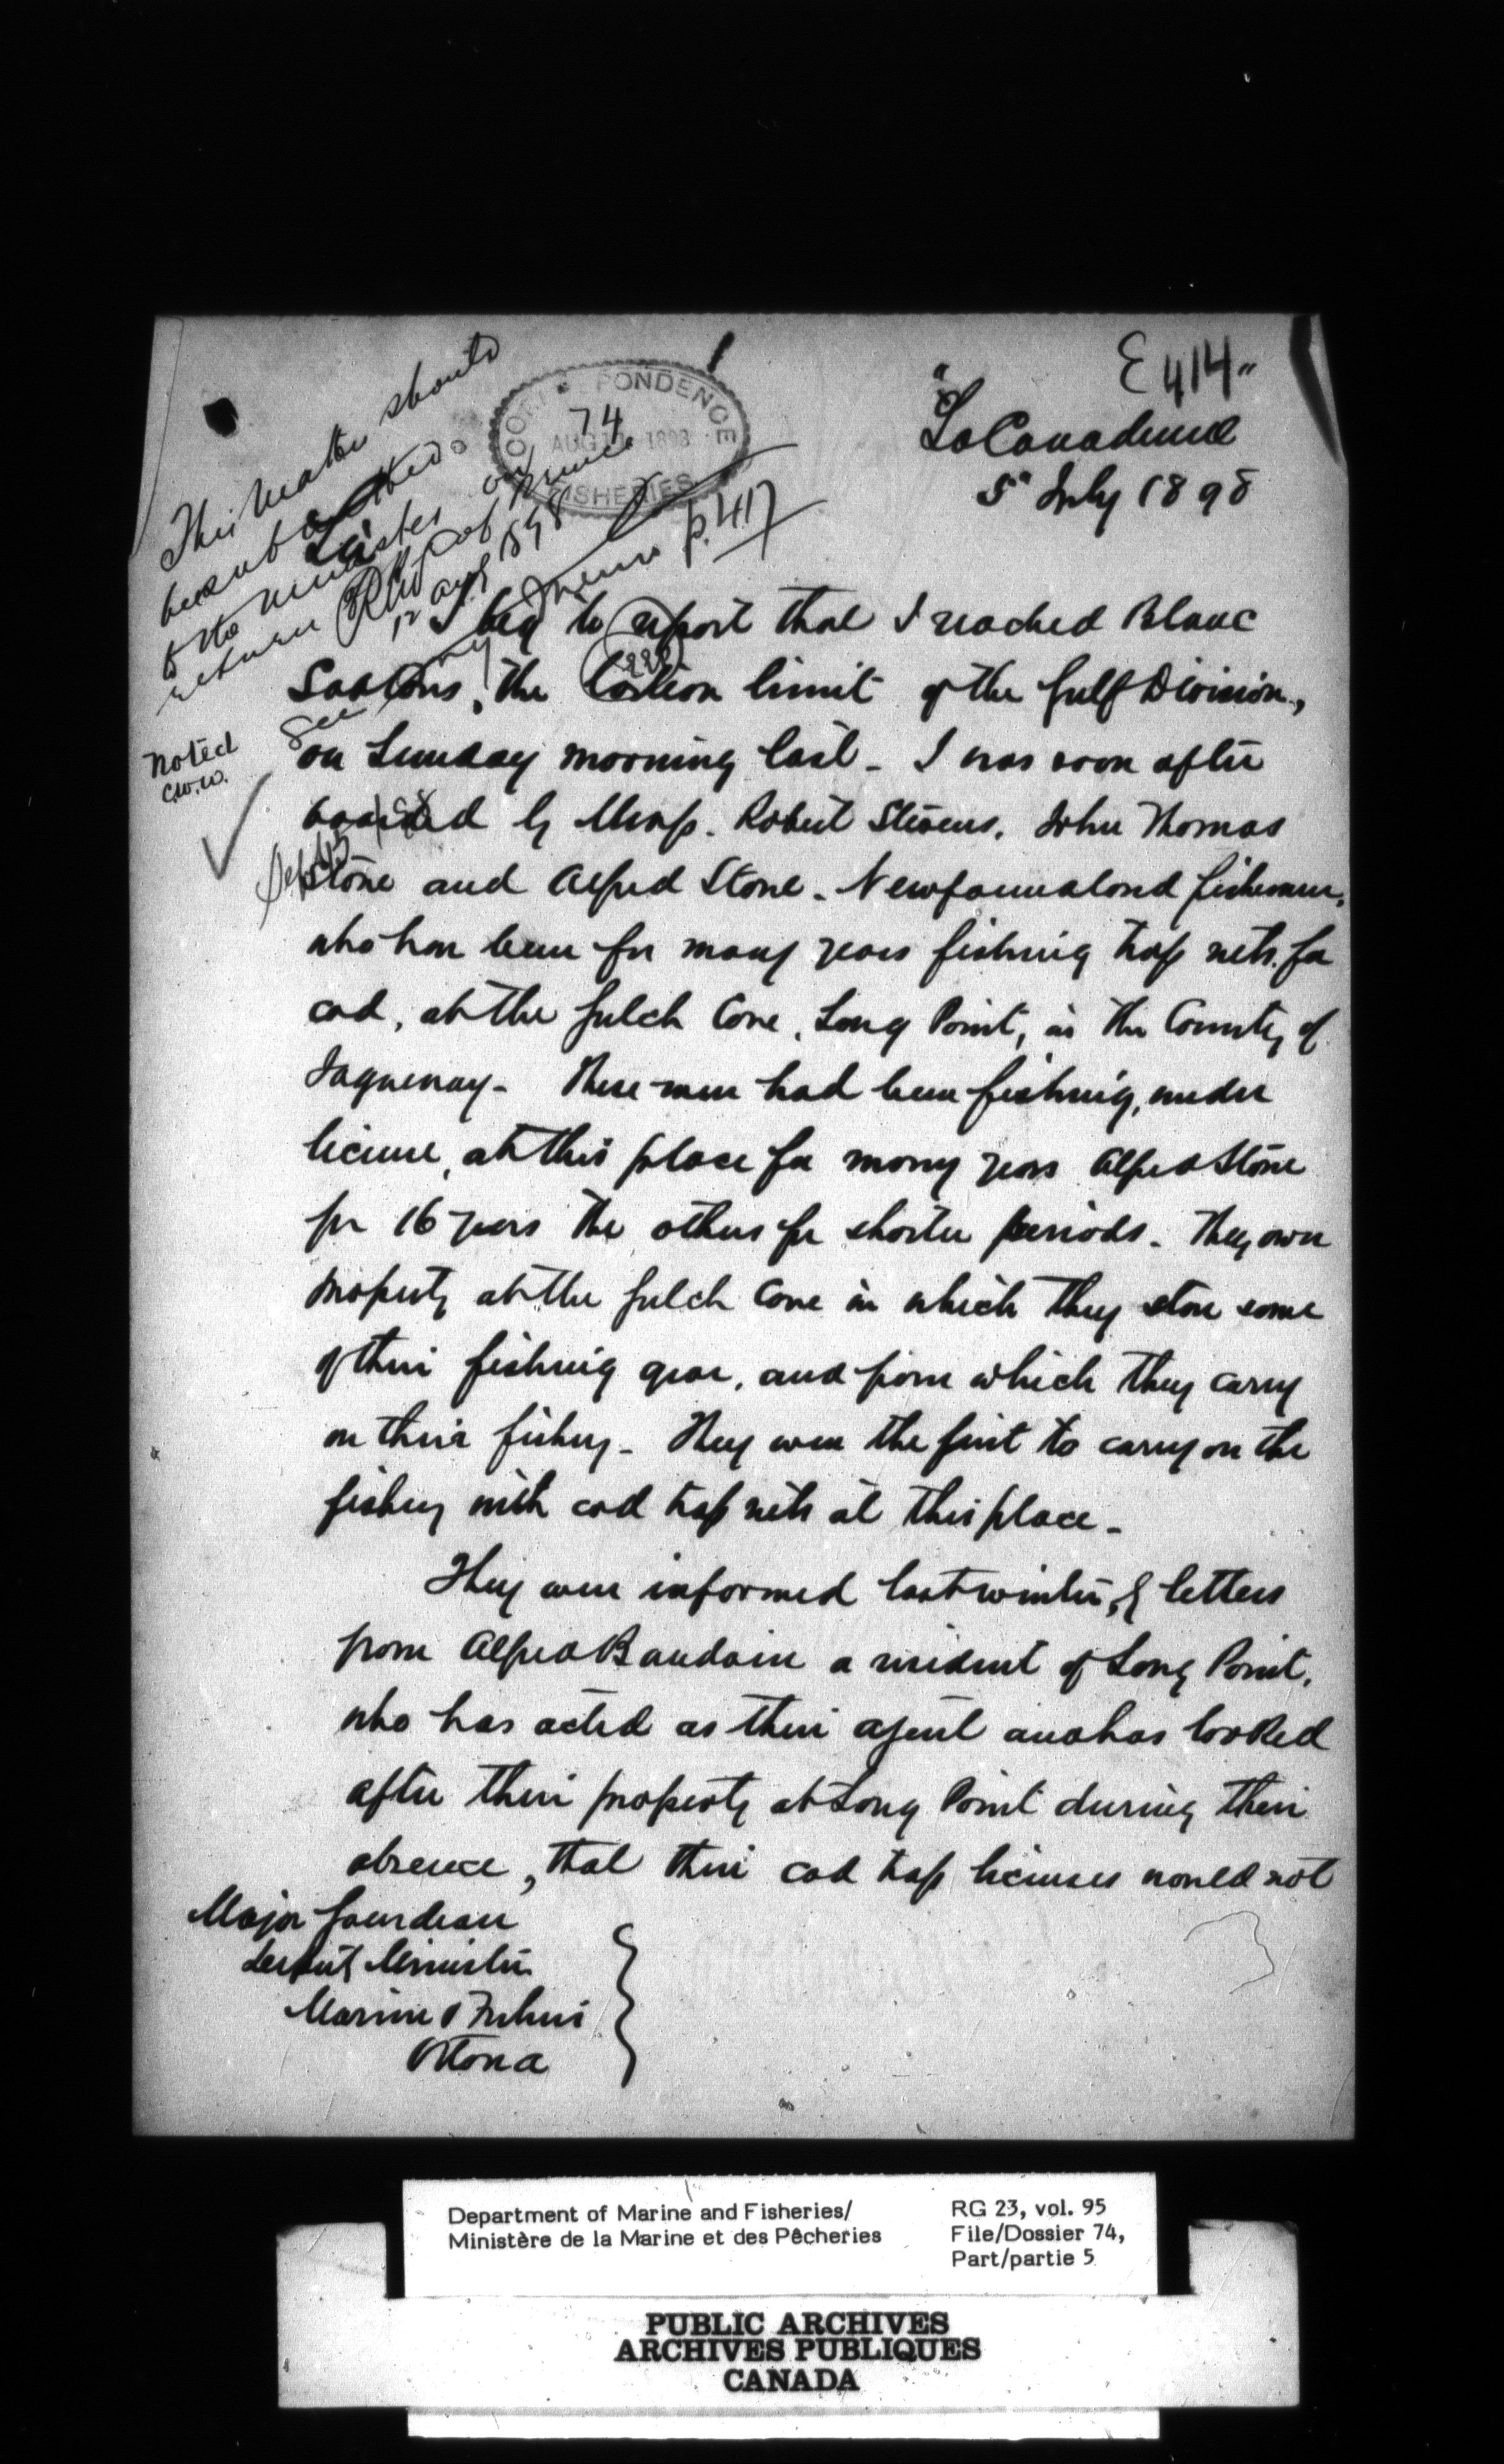 E 414"
"La Canadienne"
5" July 1898
CORRESPONDENCE
74
AUG 1898
FISHERIES
This matter should
be submitted
to the minister on
return
Prince
12 Aug 1898
See my memo p. 417
Noted
C.W.W.
Sir
I beg to report that I reached Blanc
228
Sablons, the Eastern limit of the Gulf Division,
on Sunday morning last - I was soon after
boarded by Messrs. Robert Stevens, John Thomas
Stone and Alfred Stone - Newfoundland fishermen,
who have been for many years fishing trap nets for
cod, at the Gulch Cove, Long Point, in the County of
Saguenay - These men had been fishing, under
license, at this place for many years Alfred Stone
for 16 years the others for shorter periods - They own
property at the Gulch Cove in which they store some
of their fishing gear, and from which they carry
on their fishery - They were the first to carry on the
fishery with cod trap nets at this place -
They were informed last winter, by letters
from Alfred Baudoin a resident of Long Point,
who has acted as their agent and has looked
after their property at Long Point during their
absence, that their cod trap licenses would not
Major Gourdeau
Deputy Minister
Marine & Fisheries
Ottawa
Department of Marine and Fisheries/
Ministère de la Marine et des Pêcheries
RG 23, vol. 95
File/Dossier 74,
Part/partie 5
PUBLIC ARCHIVES
ARCHIVES PUBLIQUES
CANADA